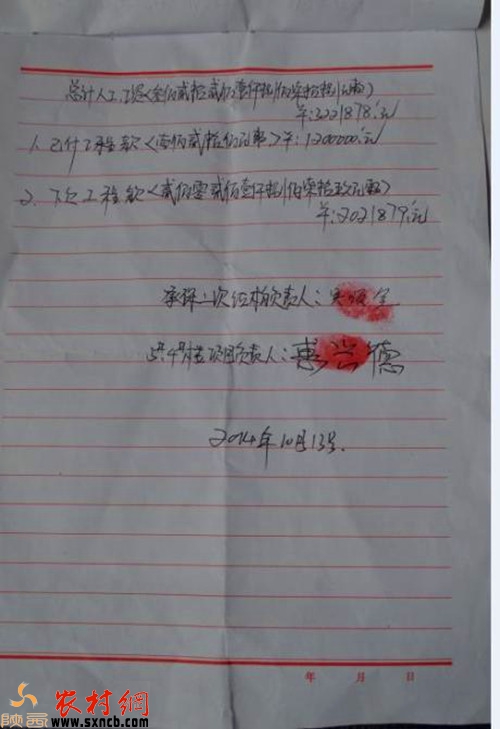 总计人工工资<叁佰贰拾贰万壹仟捌佰柒拾捌元整>
¥:3221878元
1、已付工程款<壹佰贰拾万元整>¥:1200000元
2、下欠工程款<贰佰零贰万壹仟捌佰柒拾玖元整>
¥:2021879元
承保二次结构负责人:
5#.4#楼项目负责人:惠兴德
2014年10月13号.
年 月 日
陕西农村網
www.sxncb.com